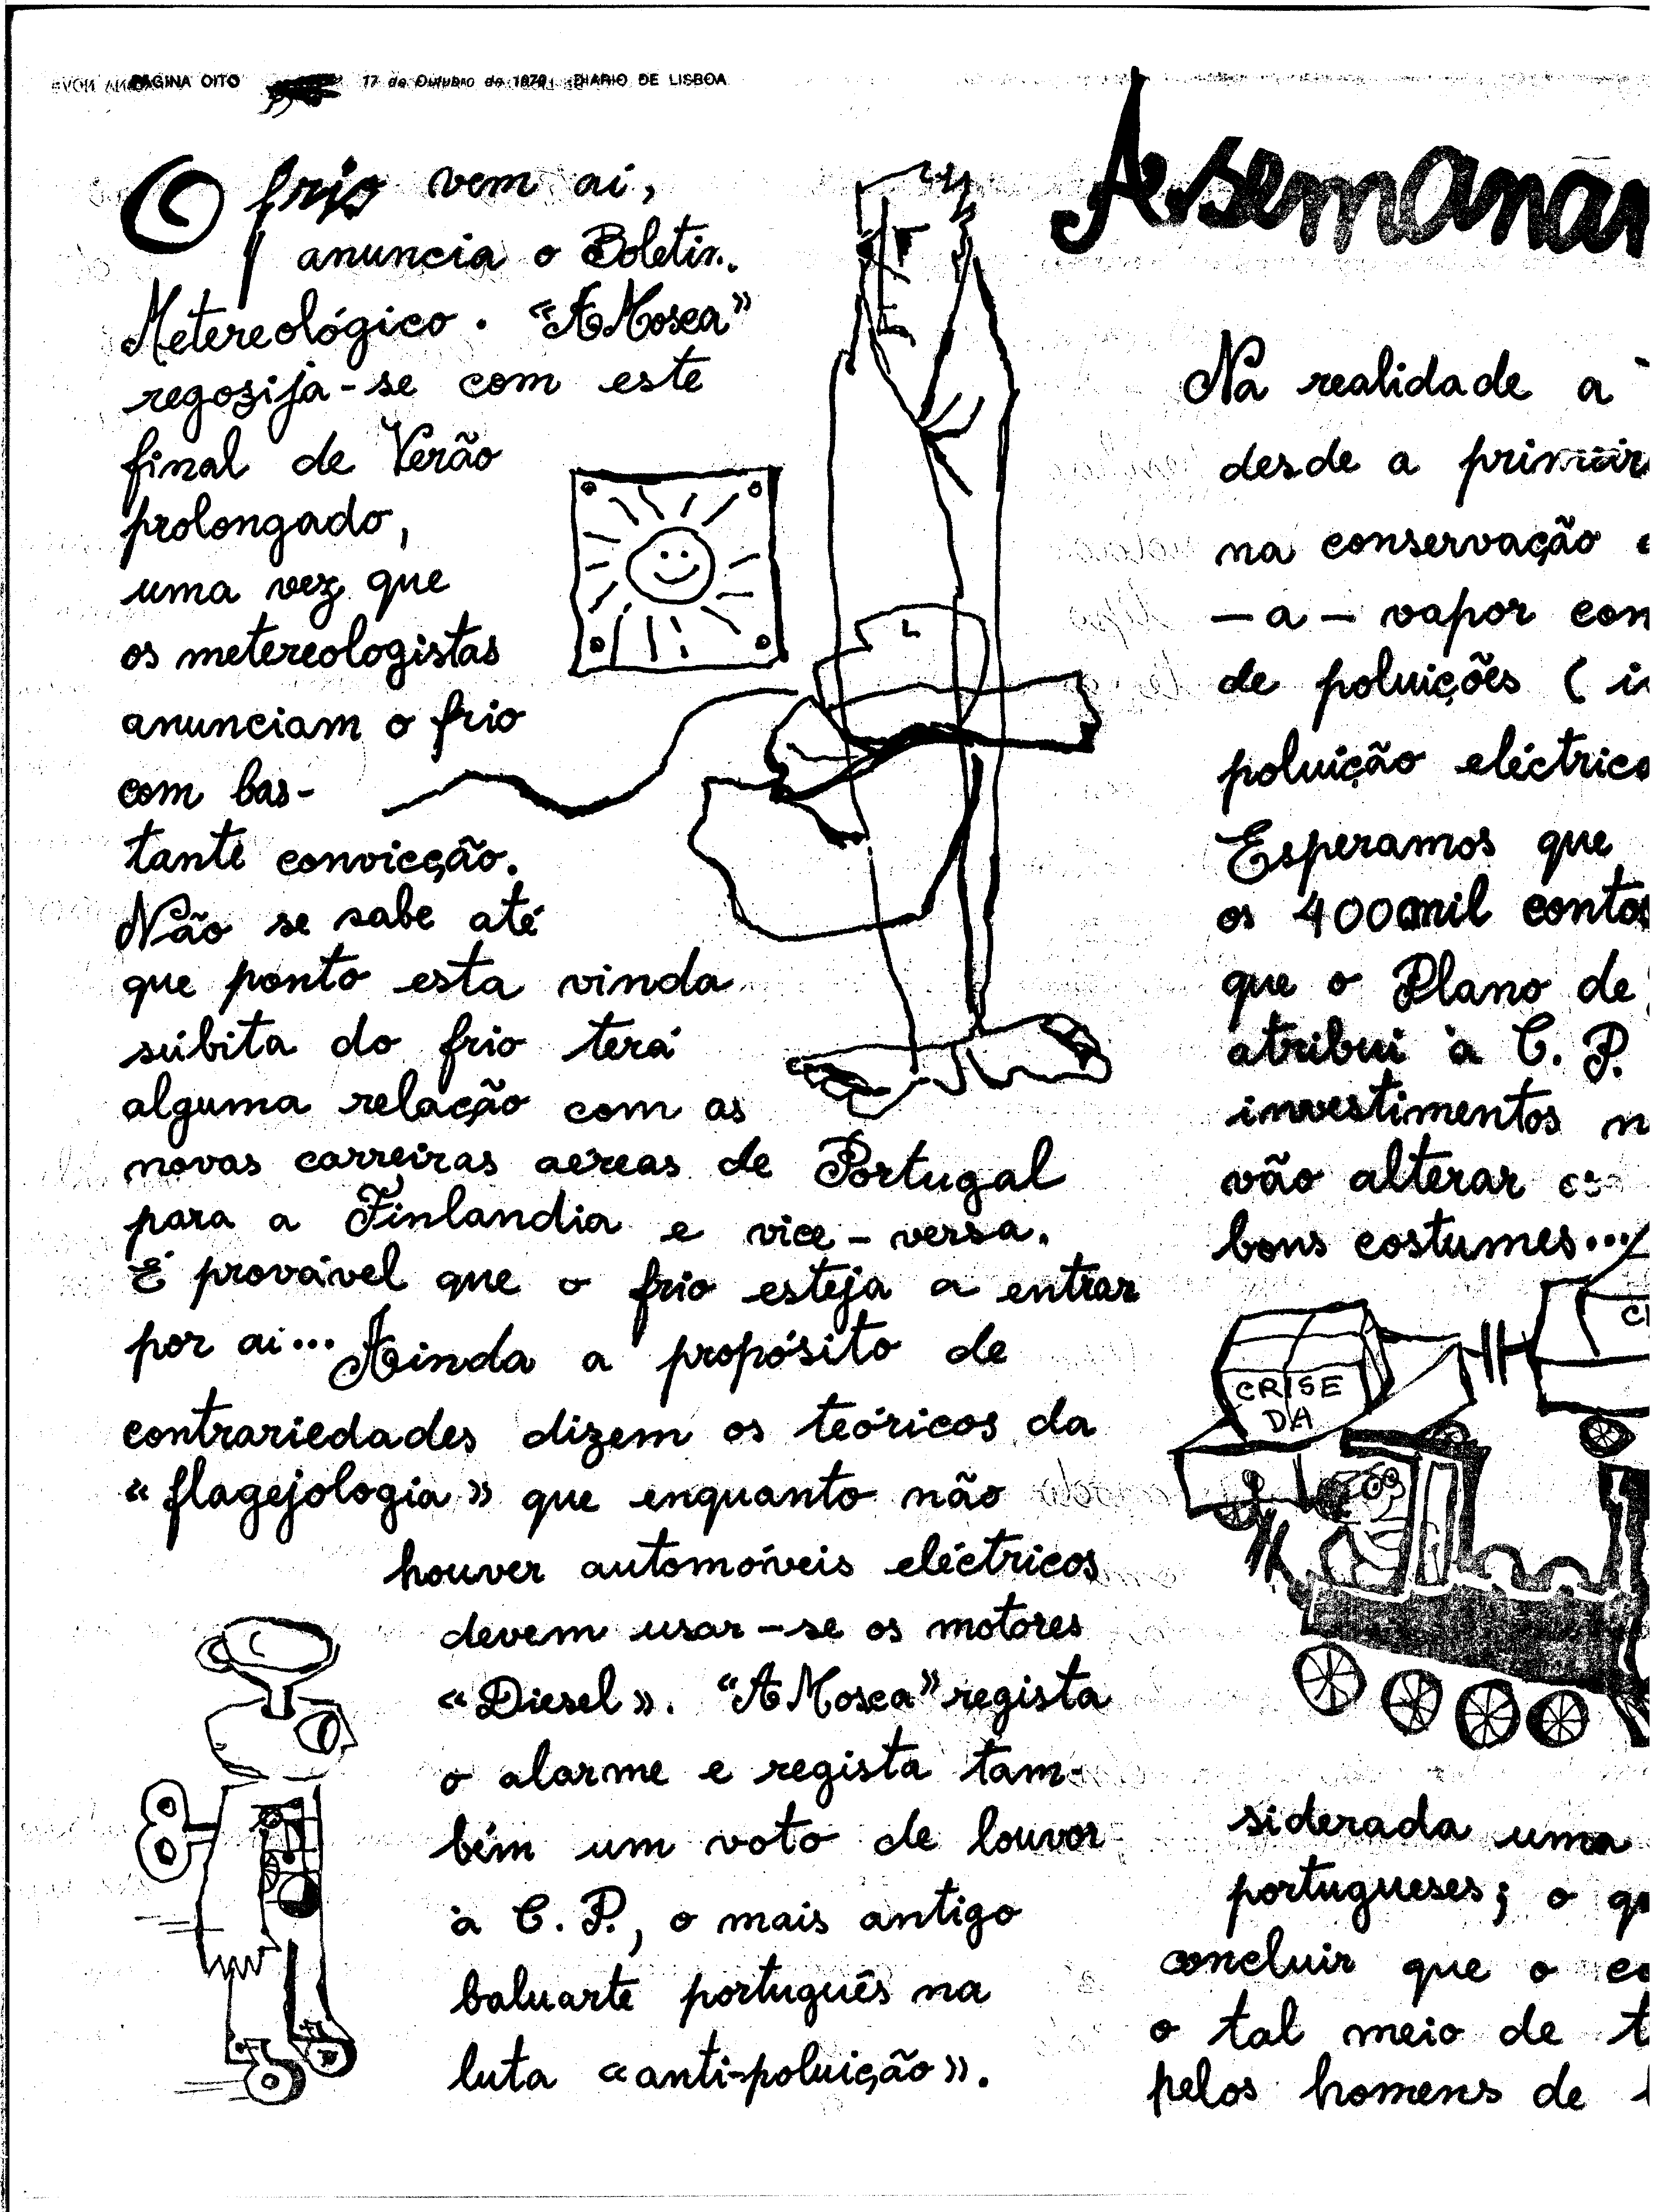 PÁGINA OITO 17 de Outubro de 1970 DIARIO DE LISBOA
A semana na
O frio vem aí,
anuncia o Boletim
Metereológico. "A Mosca"
regozija-se com este
final de Verão
prolongado,
uma vez que
os metereologistas
anunciam o frio
com bas-
tante convicção.
Não se sabe até
que ponto esta vinda
súbita do frio terá
alguma relação com as
novas carreiras aéreas de Portugal
para a Finlandia e vice-versa.
É provável que o frio esteja a entrar
por aí... Ainda a propósito de
contrariedades dizem os teóricos da
«flagejologia» que enquanto não
houver automóveis eléctricos
devem usar-se os motores
«Diesel». "A Mosca" regista
o alarme e regista tam-
bém um voto de louvor
à C. P., o mais antigo
baluarte português na
luta «anti-poluição».
Na realidade a
desde a primeir
na conservação
-a- vapor con
de poluições (
poluição eléctrica
Esperamos que
os 400 mil contos
que o Plano de
atribui à C. P.
investimentos n
vão alterar
bons costumes...
CRISE
DA
siderada uma
portugueses; o qu
concluir que o
o tal meio de t
pelos homens de